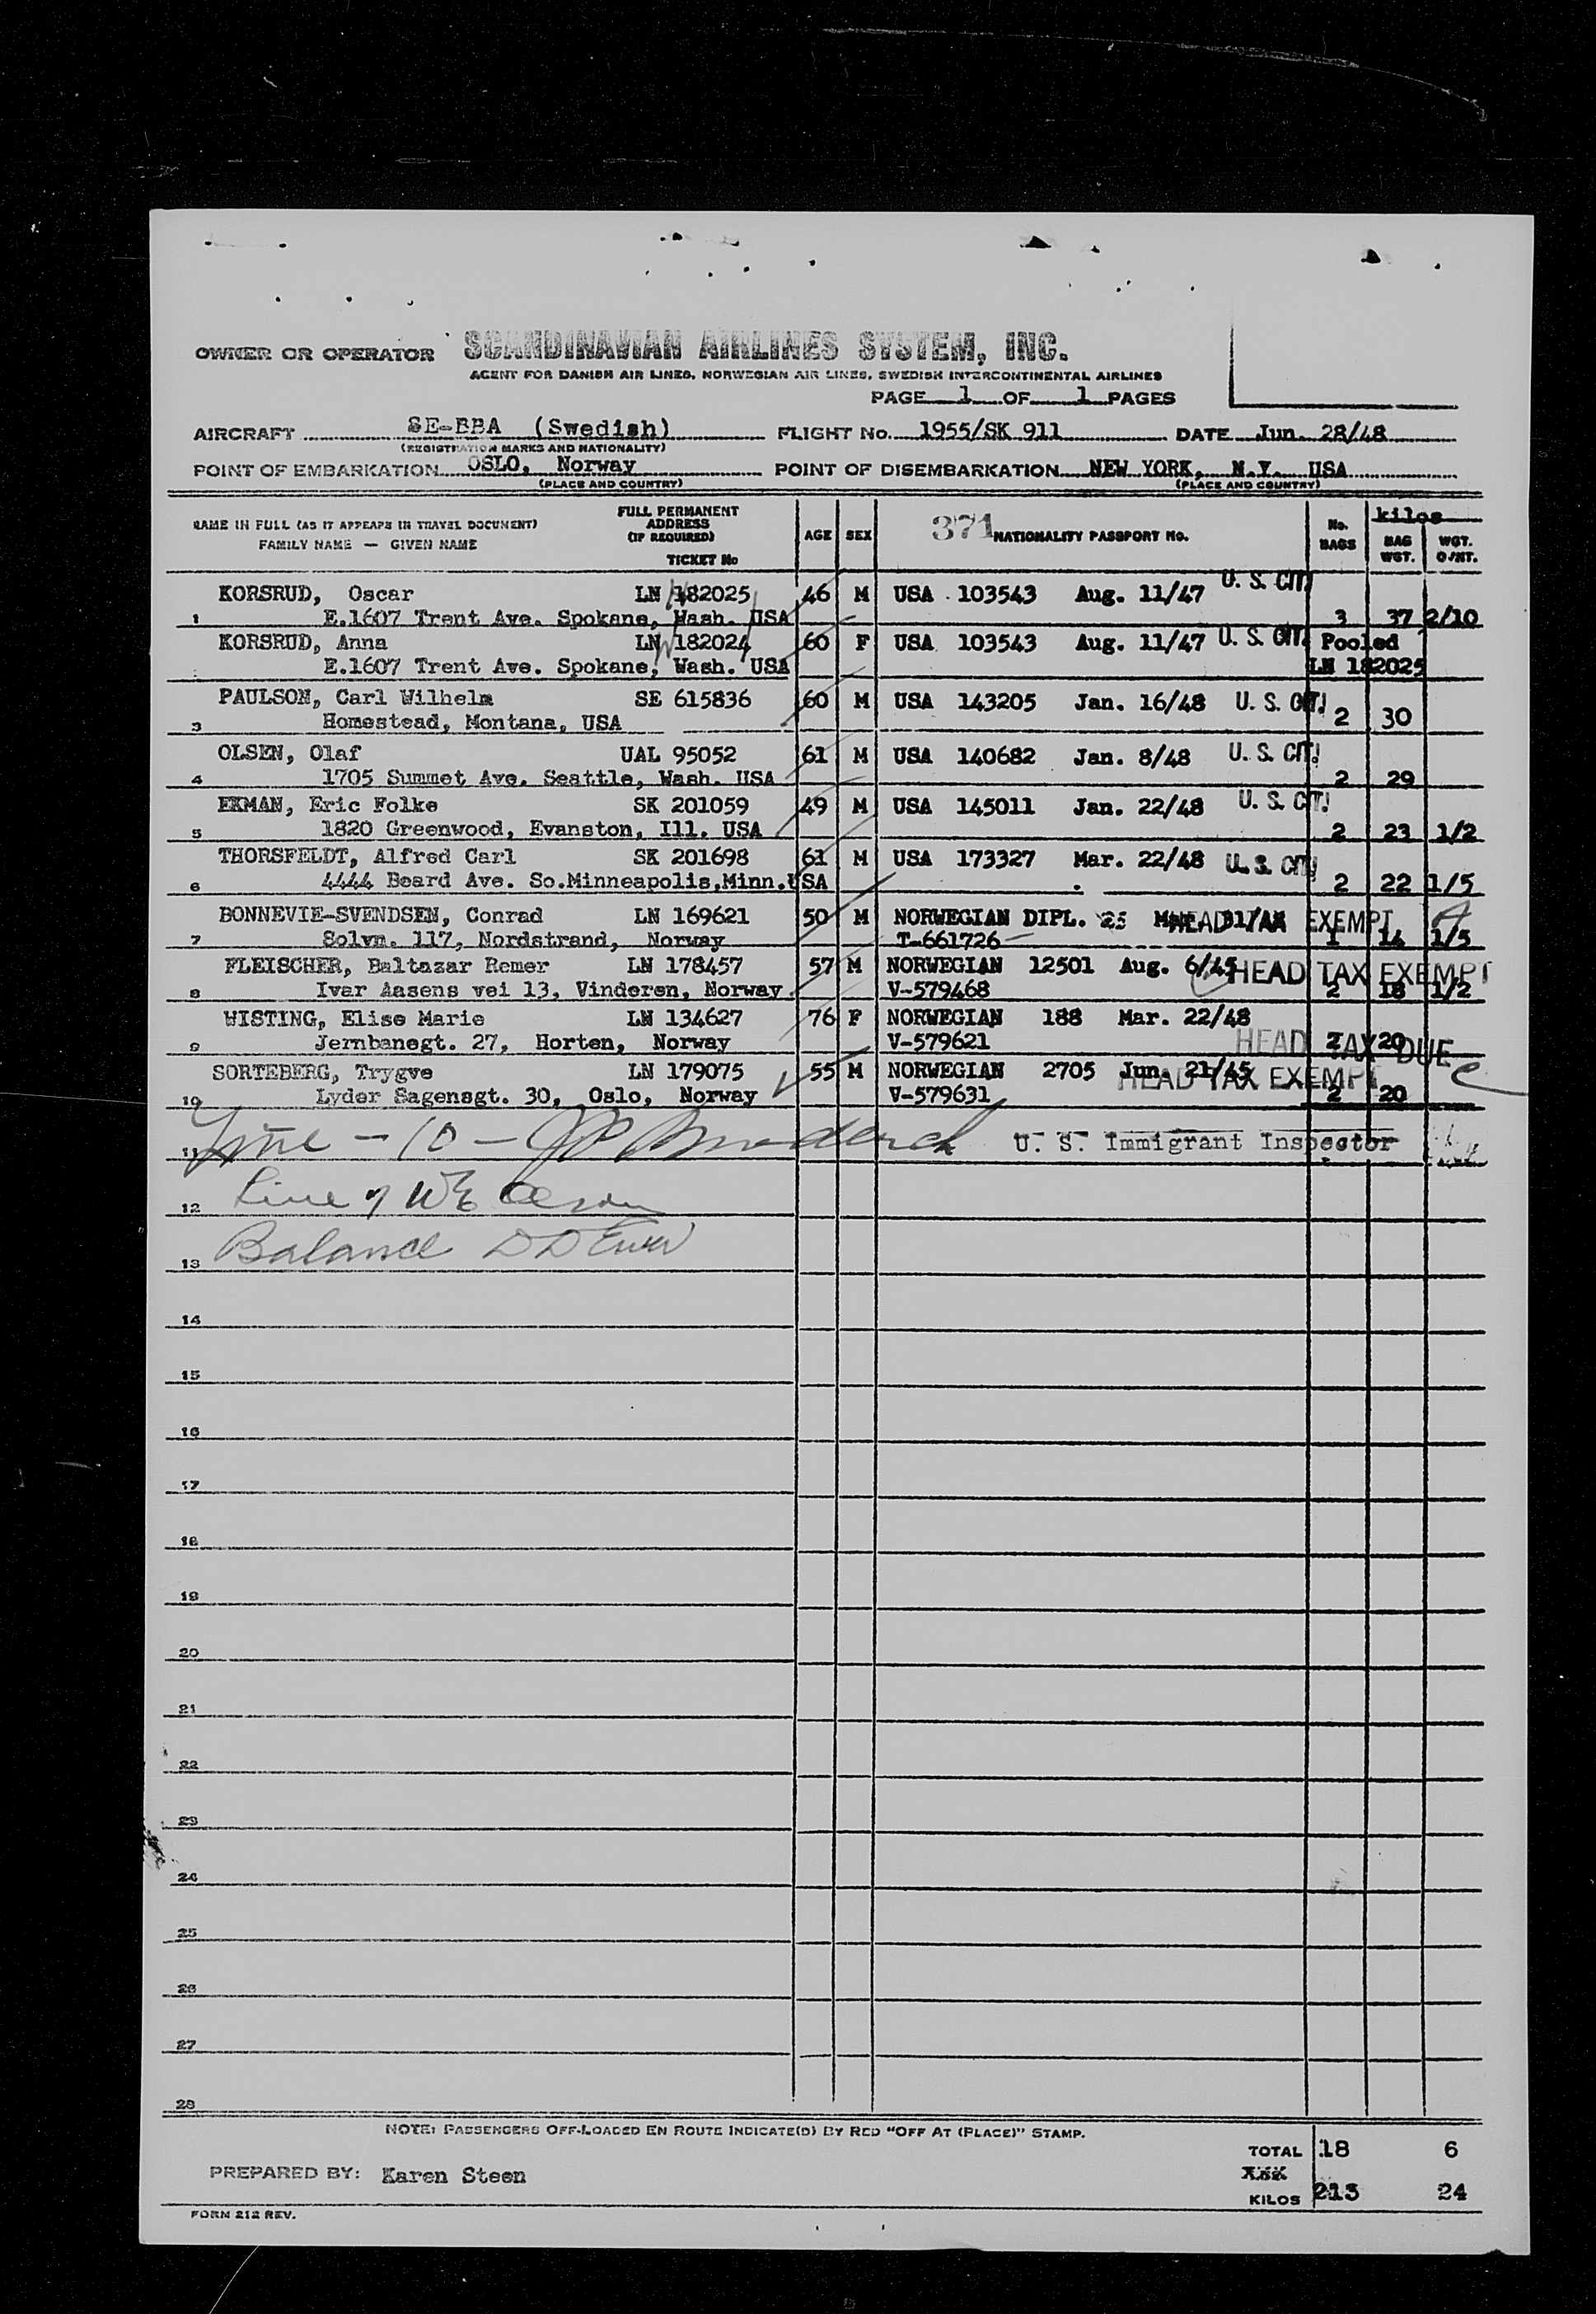 OWNER OR OPERATOR SCANDINAVIAN AIRLINES SYSTEM, INC.
AGENT FOR DANISH AIR LINES, NORWEGIAN AIR LINES, SWEDISH INTERCONTINENTAL AIRLINES
PAGE 1 OF 1 PAGES
AIRCRAFT SE-BBA (Swedish) FLIGHT No. 1955/SK 911 DATE Jun. 28/48
(REGISTRATION MARKS AND NATIONALITY)
POINT OF EMBARKATION OSLO, Norway POINT OF DISEMBARKATION NEW YORK, N.Y. USA
(PLACE AND COUNTRY) (PLACE AND COUNTRY)
NAME IN FULL (AS IT APPEARS IN TRAVEL DOCUMENT) FULL PERMANENT ADDRESS (IF REQUIRED) AGE SEX 371 NATIONALITY PASSPORT No. No. BAGS kilos BAG WGT. WGT. O/HT.
FAMILY NAME — GIVEN NAME TICKET No
KORSRUD, Oscar LN 182025 46 M USA 103543 Aug. 11/47 U. S. CIT.
1 E.1607 Trent Ave. Spokane, Wash. USA 3 37 2/10
KORSRUD, Anna LN 182024 60 F USA 103543 Aug. 11/47 U. S. CIT. Pooled
E.1607 Trent Ave. Spokane, Wash. USA LN 182025
PAULSON, Carl Wilhelm SE 615836 60 M USA 143205 Jan. 16/48 U. S. CIT.
3 Homestead, Montana, USA 2 30
OLSEN, Olaf UAL 95052 61 M USA 140682 Jan. 8/48 U. S. CIT.
4 1705 Summet Ave. Seattle, Wash. USA 2 29
EKMAN, Eric Folke SK 201059 49 M USA 145011 Jan. 22/48 U. S. CIT.
5 1820 Greenwood, Evanston, Ill. USA 2 23 1/2
THORSFELDT, Alfred Carl SK 201698 61 M USA 173327 Mar. 22/48 U. S. CIT.
6 4444 Beard Ave. So.Minneapolis,Minn.USA 2 22 1/5
BONNEVIE-SVENDSEN, Conrad LN 169621 50 M NORWEGIAN DIPL. 25 HEAD TAX EXEMPT
7 Solvn. 117, Nordstrand, Norway T-661726 1 14 1/5
FLEISCHER, Baltazar Remer LN 178457 57 M NORWEGIAN 12501 Aug. 6/45 HEAD TAX EXEMPT
8 Ivar Aasens vei 13, Vinderen, Norway V-579468 2 18 1/2
WISTING, Elise Marie LN 134627 76 F NORWEGIAN 188 Mar. 22/48
9 Jernbanegt. 27, Horten, Norway V-579621 HEAD TAX DUE 2 20
SORTEBERG, Trygve LN 179075 55 M NORWEGIAN 2705 Jun. 21/45 HEAD TAX EXEMPT
10 Lyder Sagensgt. 30, Oslo, Norway V-579631 2 20
11 Line - 10 - U. S. Immigrant Inspector
12 Line 7
13 Balance
14
15
16
17
18
19
20
21
22
23
24
25
26
27
28
NOTE: PASSENGERS OFF-LOADED EN ROUTE INDICATE(D) BY RED "OFF AT (PLACE)" STAMP.
TOTAL 18 6
PREPARED BY: Karen Steen
KILOS 213 24
FORM 212 REV.